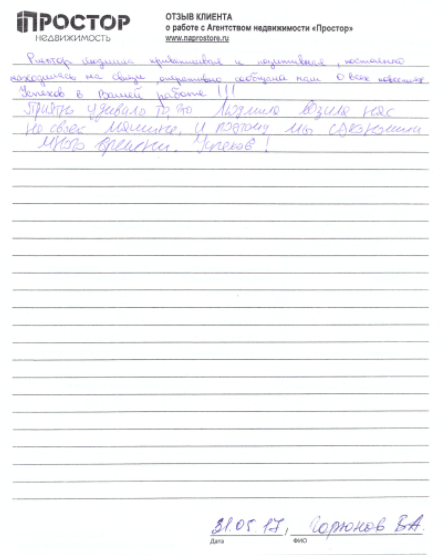 ПРОСТОР
НЕДВИЖИМОСТЬ
ОТЗЫВ КЛИЕНТА
о работе с Агентством недвижимости «Простор»
www.naprostore.ru
Риэлтор Людмила приветливая и позитивная, постоянно
находилась на связи, оперативно сообщала нам о всех новостях.
Успехов в Вашей работе!!!
Приятно удивило то, что Людмила возила нас
на своей машине. И поэтому мы сэкономили
много времени. Успехов!
31.05.17, Горюнов В.А.
Дата ФИО